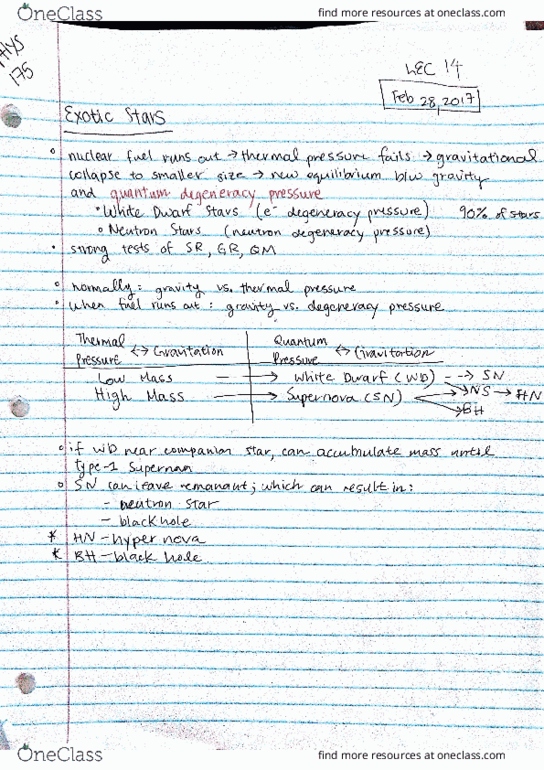 OneClass
find more resources at oneclass.com
PHYS
175
LEC 14
Feb 28, 2017
Exotic Stars
◦ nuclear fuel runs out → thermal pressure fails → gravitational
collapse to smaller size → new equilibrium b/w gravity
and quantum degeneracy pressure
• White Dwarf Stars (e⁻ degeneracy pressure) 90% of stars
◦ Neutron Stars (neutron degeneracy pressure)
• strong tests of SR, GR, QM
◦ normally: gravity vs. thermal pressure
• when fuel runs out: gravity vs. degeneracy pressure
Thermal Pressure ↔ Gravitation | Quantum Pressure ↔ Gravitation
Low Mass → White Dwarf (WD) --> SN
High Mass → Supernova (SN) → NS → HN
→ BH
◦ if WD near companion star, can accumulate mass until
type-1 Supernan
◦ SN can leave remanant; which can result in:
– neutron star
– black hole
* HN – hyper nova
* BH – black hole
OneClass
find more resources at oneclass.com